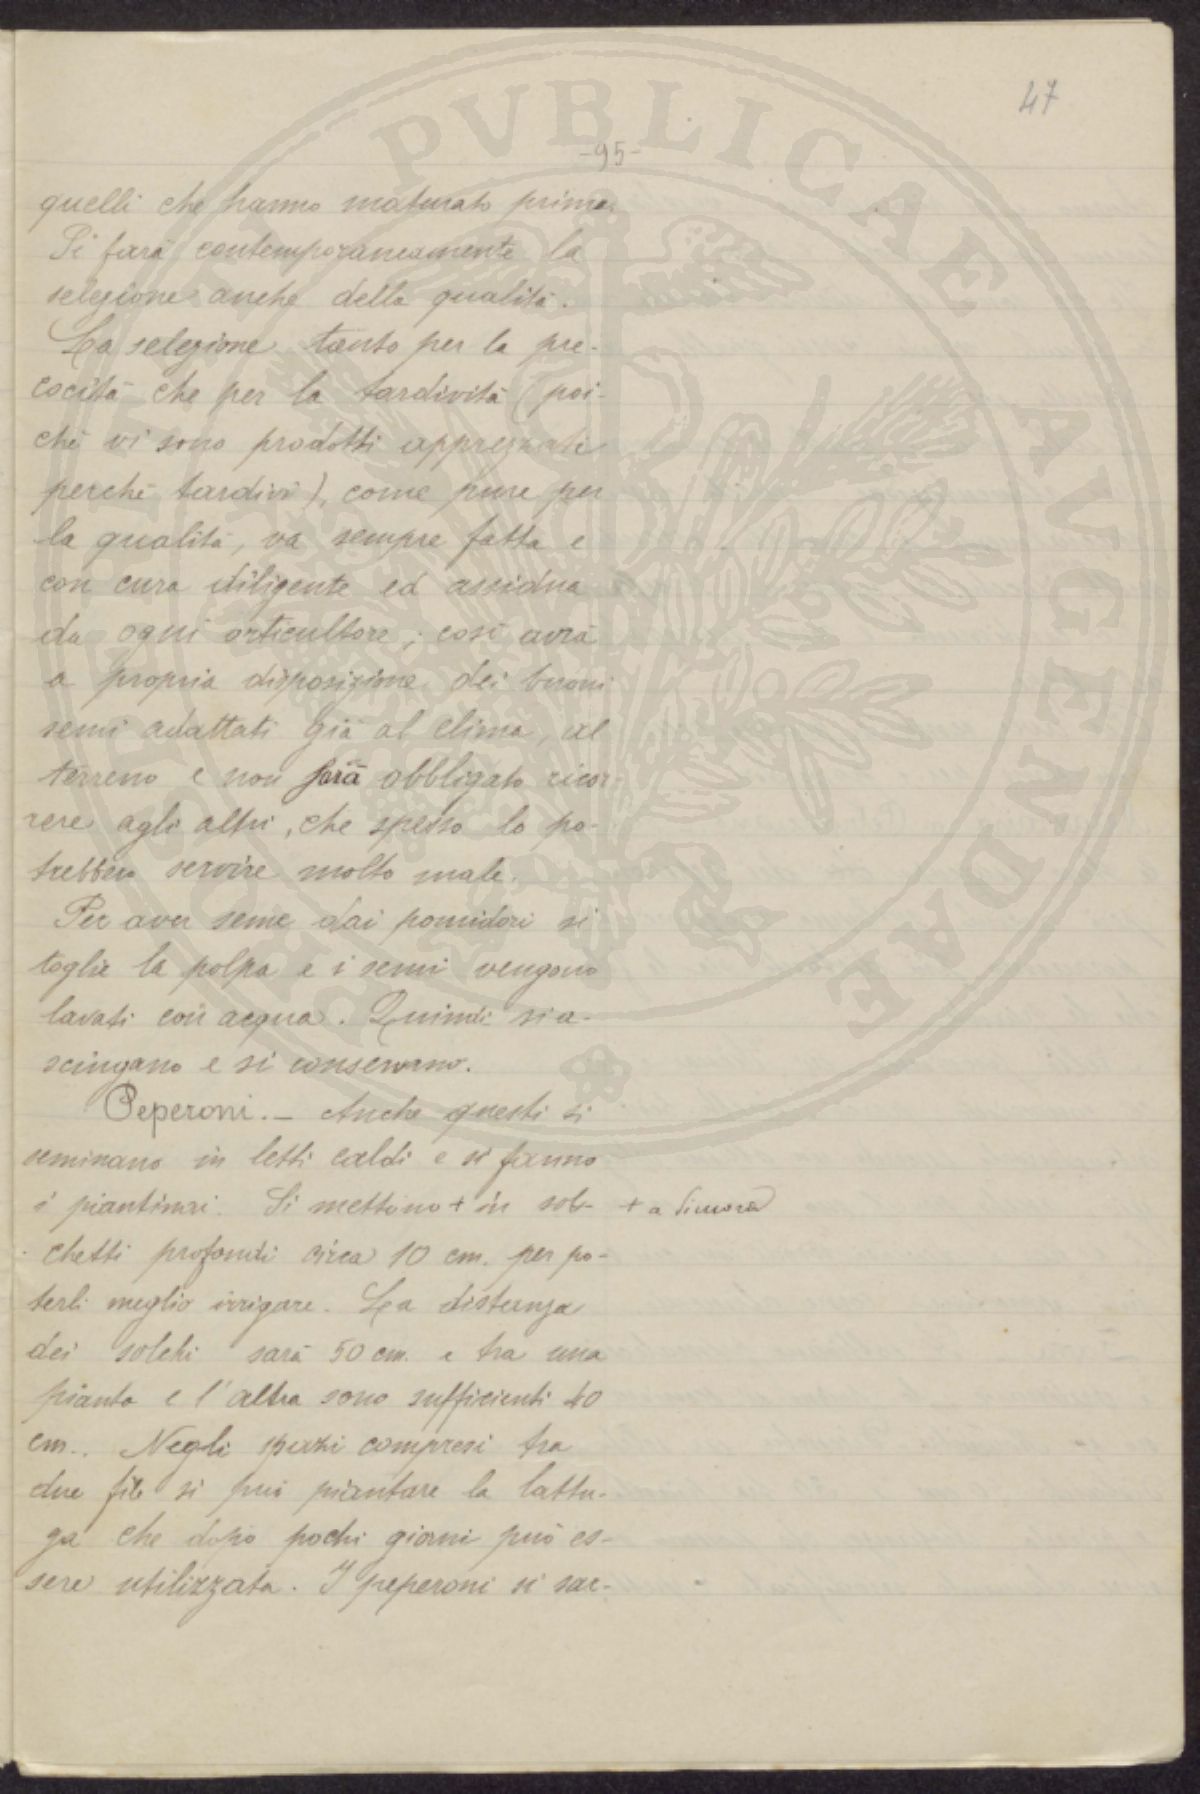 47
-95-
quelli che hanno maturato prima.
Si farà contemporaneamente la
selezione anche della qualità.
La selezione tanto per la pre-
cocità che per la tardività (poi-
chè vi sono prodotti apprezzati
perchè tardivi), come pure per
la qualità, va sempre fatta e
con cura diligente ed assidua
da ogni orticultore; così avrà
a propria disposizione dei buoni
semi adattati già al clima, al
terreno e non sarà obbligato ricor-
rere agli altri, che spesso lo po-
trebbero servire molto male.
Per aver seme dai pomidori si
toglie la polpa e i semi vengono
lavati con acqua. Quindi si a-
sciugano e si conservano.
Peperoni. - Anche questi si
seminano in letti caldi e si fanno
i piantinai. Si mettono + in sol- + a dimora
chetti profondi circa 10 cm. per po-
terli meglio irrigare. La distanza
dei solchi sarà 50 cm. e tra una
pianta e l'altra sono sufficienti 40
cm.. Negli spazi compresi tra
due file si può piantare la lattu-
ga che dopo pochi giorni può es-
sere utilizzata. I peperoni si sar-
PVBLICAE AVGENDAE